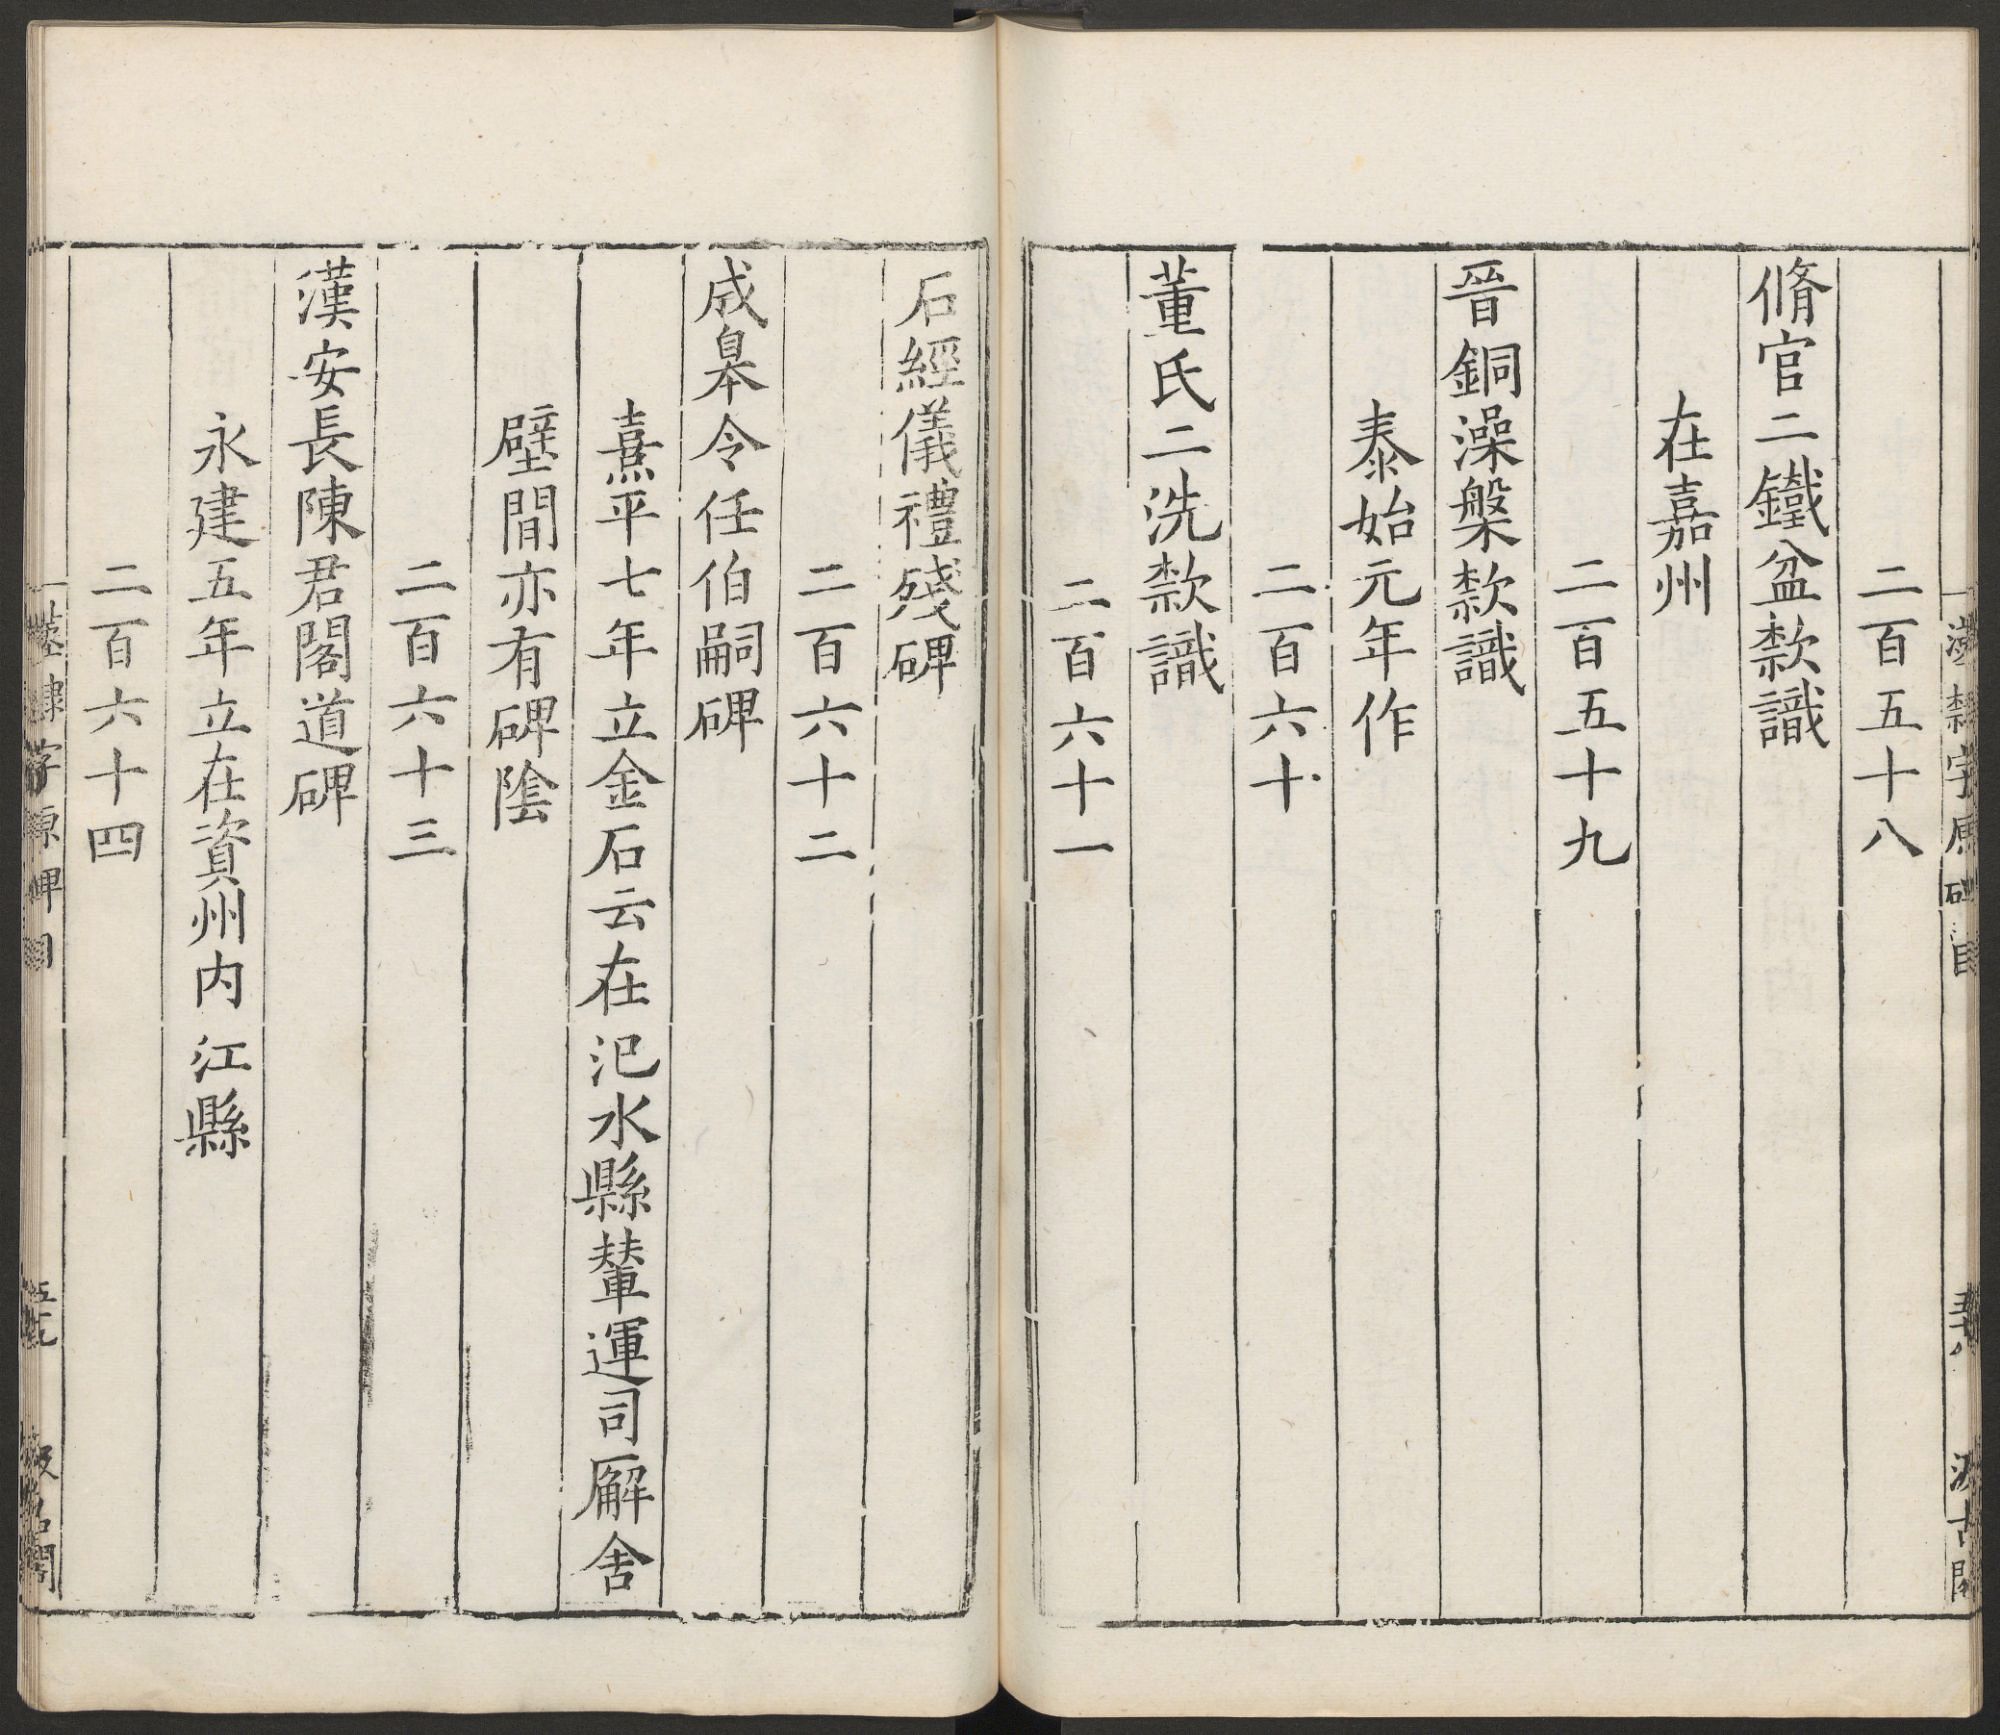 二百五十八
脩官二鐵盆欵識
在嘉州
二百五十九
晉銅澡槃欵識
泰始元年作
二百六十
董氏二洗欵識
二百六十一
石經儀禮殘碑
二百六十二
成皋令任伯嗣碑
熹平七年立金石云在汜水縣輦運司廨舍
壁間亦有碑陰
二百六十三
漢安長陳君閣道碑
永建五年立在資州内江縣
二百六十四